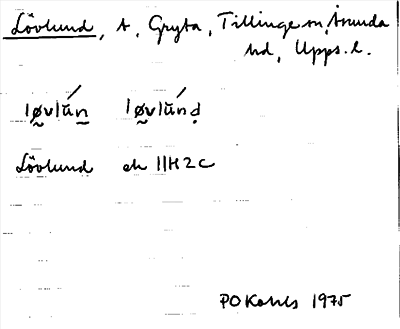 Lövlund, t, Gryta, Tillinge sn, Åsunda
hd, Upps. l.
løvlún løvlúnḍ
Lövlund ek 11H2c
PO Kahls 1975